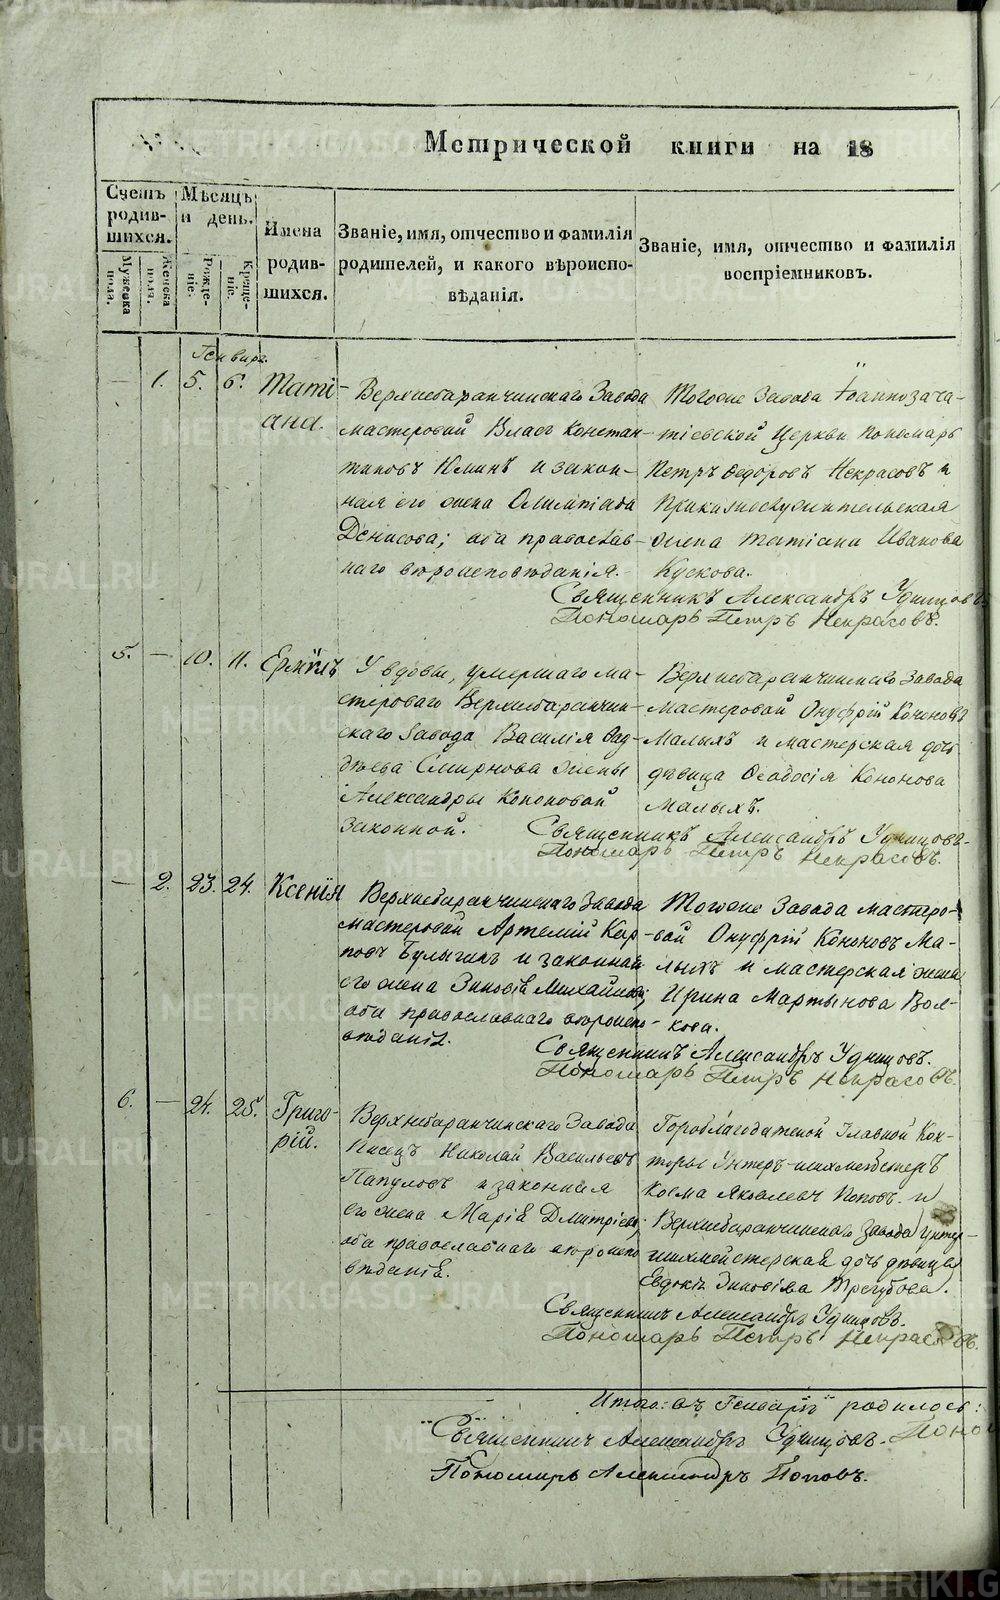 Метрической книги на 18
Счетъ родившихся.
Мужеска пола.
Женска пола.
Мѣсяцъ и день.
Рожденіе.
Крещеніе.
Имена родившихся.
Званіе, имя, отчество и фамилія родителей, и какого вѣроисповѣданія.
Званіе, имя, отчество и фамилія воспріемниковъ.
Генваря.
— 1. 5. 6. Тати-
ана.
Верхнебаранчинскаго Завода
мастеровой Власъ Констан-
тиновъ и закон-
ная его жена Олимпіада
Денисова; оба православ-
наго вѣроисповѣданія.
Тогоже Завода Іоаннозача-
тіевской Церкви пономарь
Петръ Ѳедоровъ Некрасовъ и
Приказнослужительская
жена Татіана Иванова
Кускова.
Священникъ Александръ Удинцовъ.
Пономарь Петръ Некрасовъ.
5. — 10. 11. Ермилъ
У вдовы, умершаго ма-
стероваго Верхнебаранчин-
скаго Завода Василія Ѳад-
дѣева Смирнова жены
Александры Кононовой
законной.
Верхнебаранчинскаго Завода
мастеровой Онуфрій Кононовъ
Малыхъ и мастерская дочь
дѣвица Ѳеодосія Кононова
Малыхъ.
Священникъ Александръ Удинцовъ.
Пономарь Петръ Некрасовъ.
— 2. 23. 24. Ксенія
Верхнебаранчинскаго Завода
мастеровой Артемій Кар-
повъ Булыгинъ и законная
его жена Зиновія Михайлова;
оба православнаго вѣроиспо-
вѣданія.
Тогоже Завода мастеро-
вой Онуфрій Кононовъ Ма-
лыхъ и мастерская жена
Ирина Мартынова Вол-
кова.
Священникъ Александръ Удинцовъ.
Пономарь Петръ Некрасовъ.
6. — 24. 25. Григо-
рій.
Верхнебаранчинскаго Завода
Писецъ Николай Васильевъ
Папуловъ и законная
его жена Марія Дмитріева;
оба православнаго вѣроиспо
вѣданія.
Гороблагодатской Главной Кон-
торы Унтеръ-шихмейстеръ
Косма Яковлевъ Поповъ и
Верхнебаранчинскаго Завода Унтер-
шихмейстерская дочь дѣвица
Евдокія Зиновіева Трегубова.
Священникъ Александръ Удинцовъ.
Пономарь Петръ Некрасовъ.
Итого: въ Генварѣ родилось:
Священникъ Александръ Удинцовъ.
Пономарь Александръ Поповъ.
METRIKI.GASO-URAL.RU